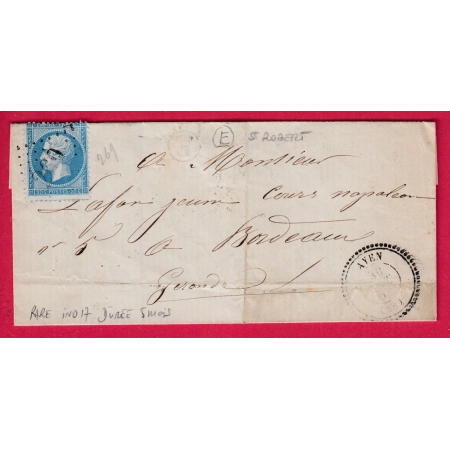 E St ROBERT
269
a Monsieur
Lafon jeune cours napoleon
n° 5 a Bordeaux
Gironde
AYEN
RARE IND 17 DUREE 5 MOIS
20 C POSTES 20 C